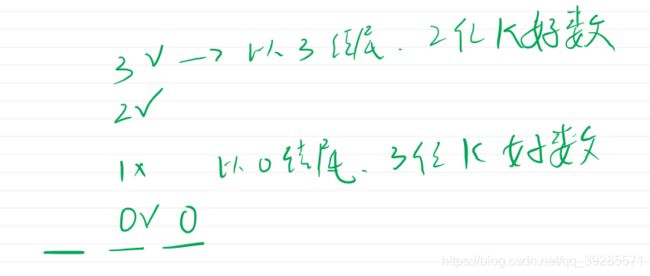 3 √ → 以3结尾. 2位K好数
2√
1× 以0结尾. 3位K好数
0√ 0
https://blog.csdn.net/qq_39285571